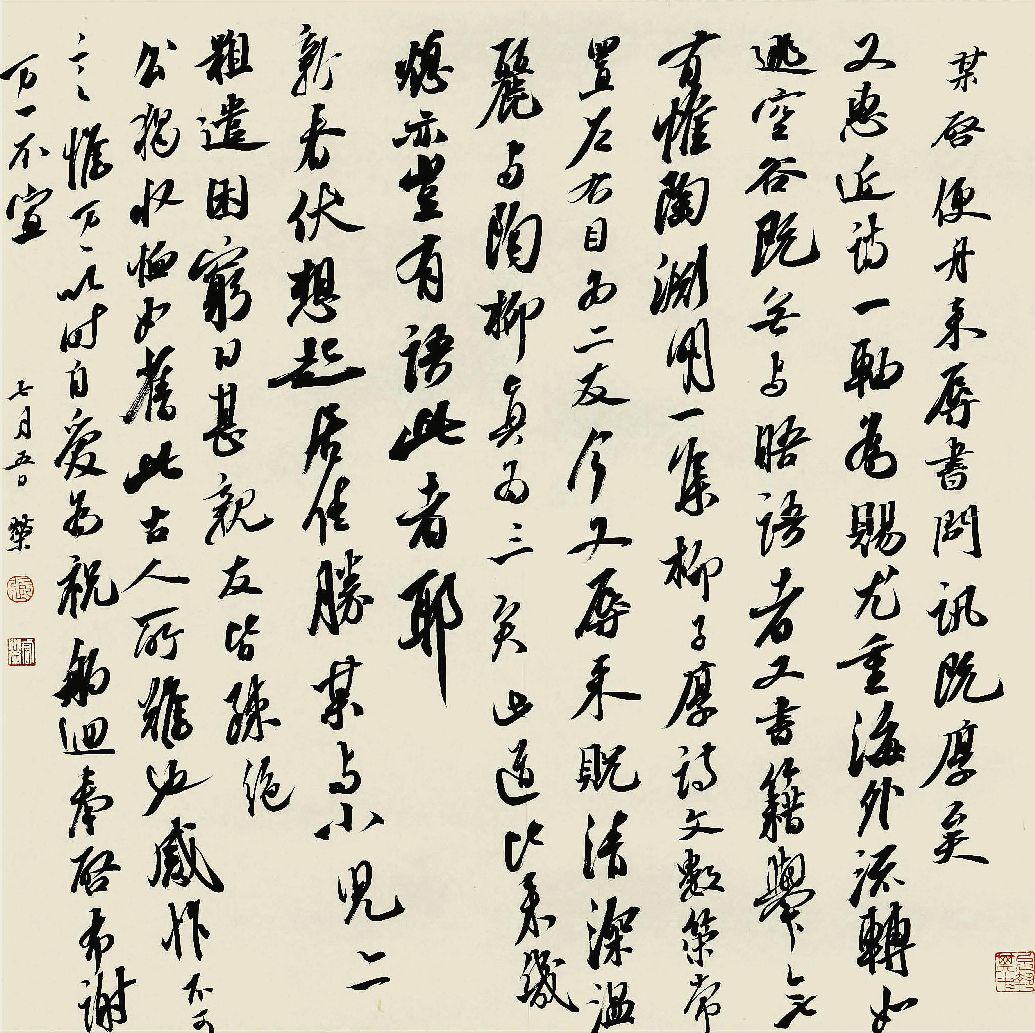 某啓便舟来辱書問訊既厚矣
又惠近詩一軸為賜尤重海外流轉如
逃空谷既无与晤語者又書籍舉无
有惟陶淵明一集柳子厚詩文數策常
置左右目為二友今又辱来貺清深温
麗与陶柳真為三矣此道比来幾
熄亦豈有語此者耶
新春伏想起居佳勝某与小兒二
粗遣困窮日甚親友皆疎絕
公獨收恤如舊此古人所難也感怍不可
言之惟万一以時自愛為祝舶迴奉啓布謝
万一不宣
七月五日